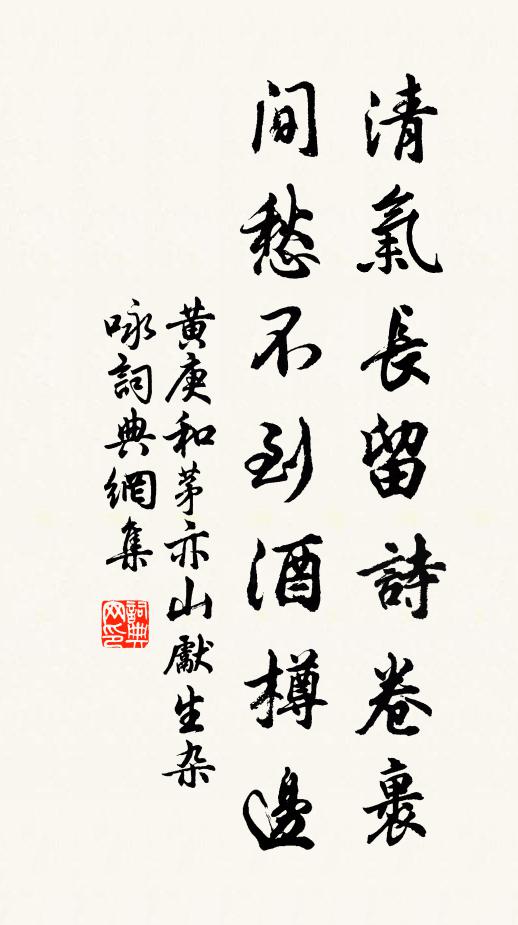 清氣長留詩卷裏
間愁不到酒樽邊
黄庚和茅亦山獻生杂
咏詞典網集
詞典
网印